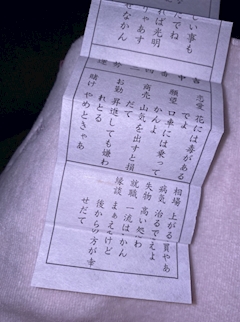 しい事も
たでね
れば光明
りゃあす
せなかん
運勢 二四 中吉
恋愛 花には毒がある
でよ
願望 口車には乗って
かんよ
商売 山気を出すと損
だて
お勤 昇進しても嫌わ
れとる
賭け やめときゃあ
相場 上がる買やあ
病気 治るでえよ
失物 高い処にわ
就職 一流はかん
縁談 まぁええけど
後からの方が幸
せだて